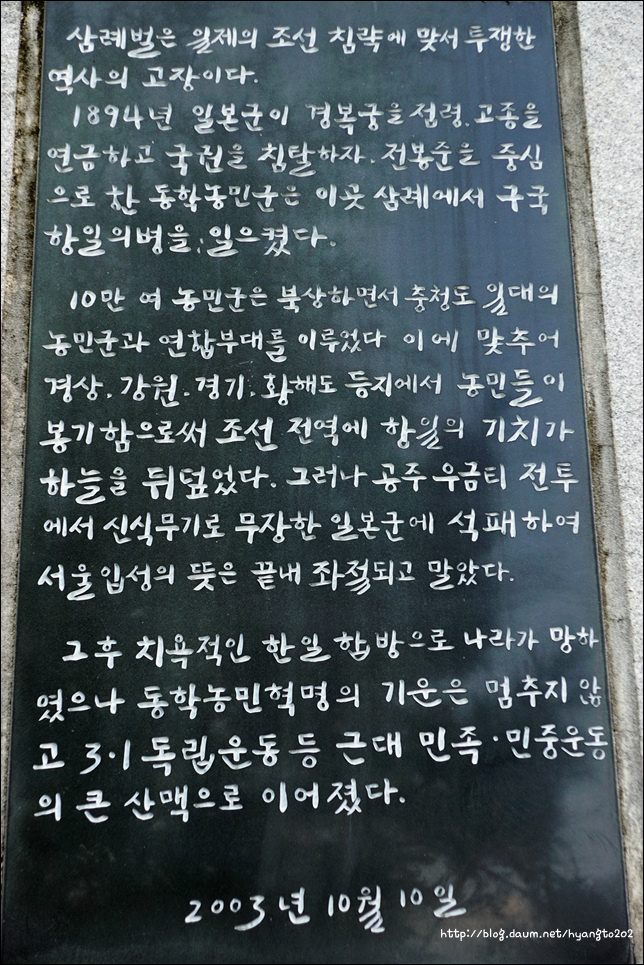 삼례벌은 일제의 조선 침략에 맞서 투쟁한
역사의 고장이다.
1894년 일본군이 경복궁을 점령, 고종을
연금하고 국권을 침탈하자, 전봉준을 중심
으로 한 동학농민군은 이곳 삼례에서 구국
항일의병을 일으켰다.
10만 여 농민군은 북상하면서 충청도 일대의
농민군과 연합부대를 이루었다 이에 맞추어
경상, 강원, 경기, 황해도 등지에서 농민들이
봉기함으로써 조선 전역에 항일의 기치가
하늘을 뒤덮었다. 그러나 공주 우금티 전투
에서 신식무기로 무장한 일본군에 석패하여
서울입성의 뜻은 끝내 좌절되고 말았다.
그후 치욕적인 한일합방으로 나라가 망하
였으나 동학농민혁명의 기운은 멈추지 않
고 3·1독립운동 등 근대 민족·민중운동
의 큰 산맥으로 이어졌다.
2003년 10월 10일
http://blog.daum.net/hyangto202